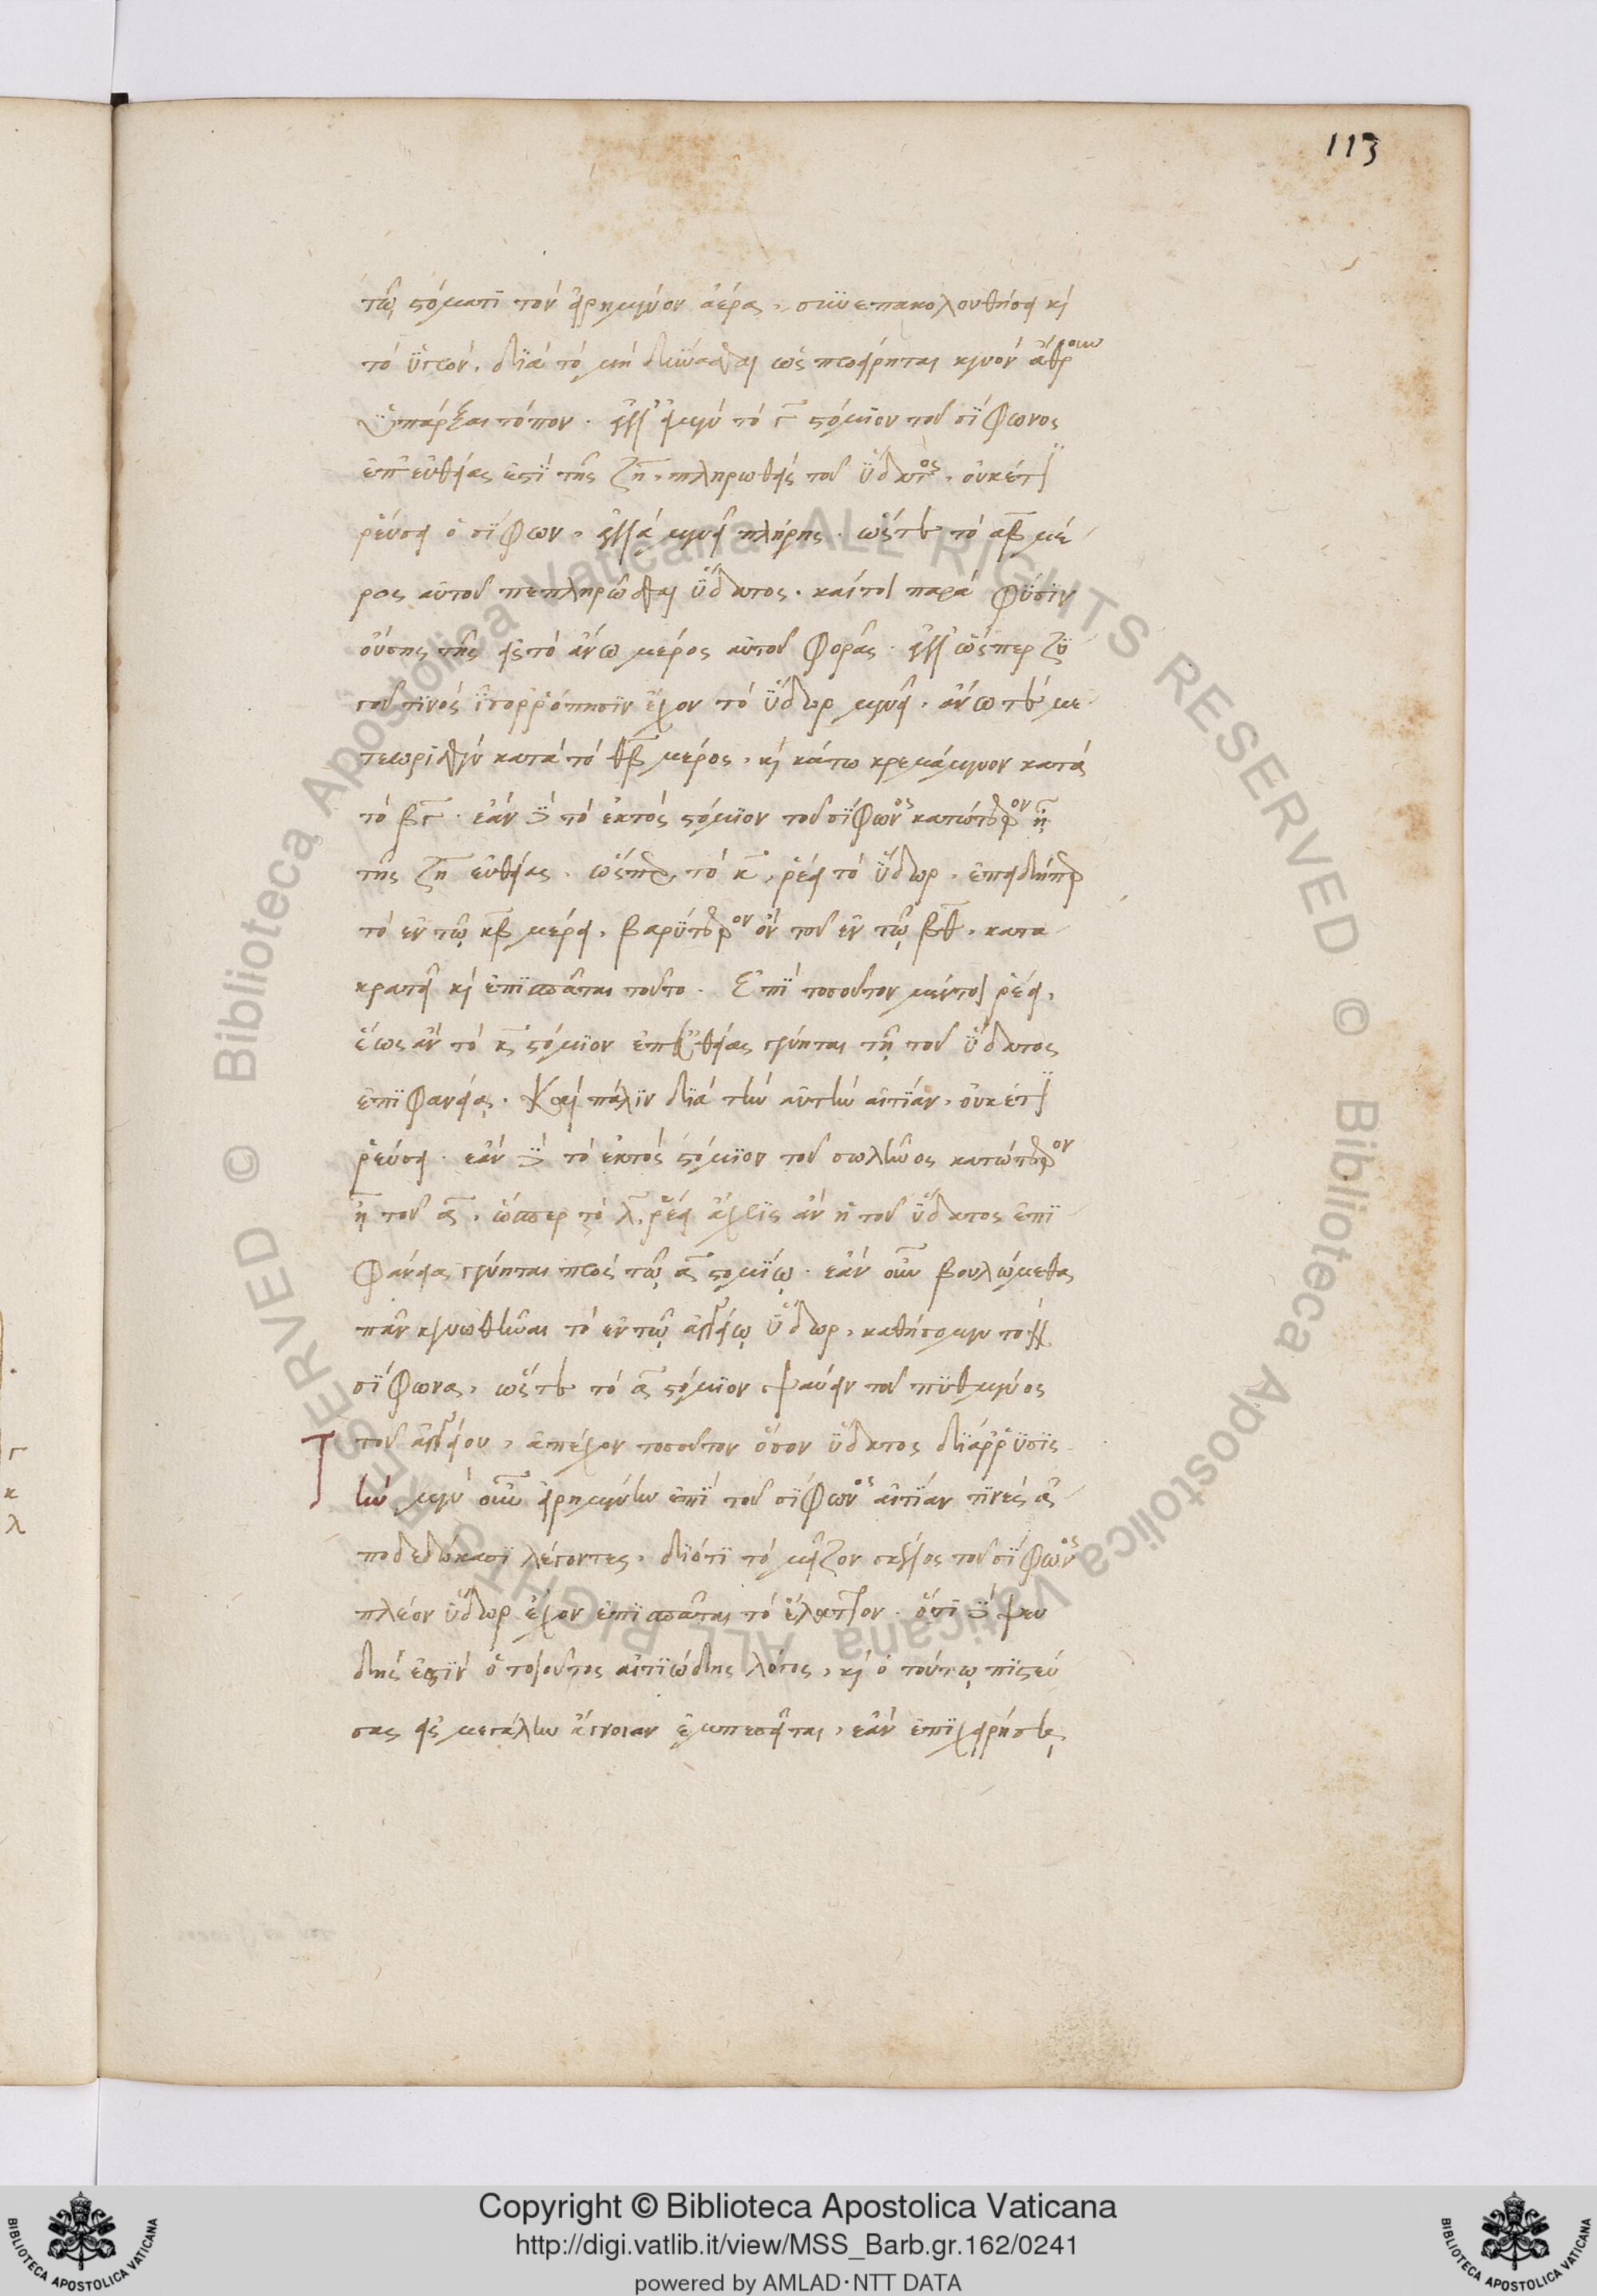 113
τῷ στόματι τὸν εἰρημένον ἀέρα, συνεπακολουθήσει καὶ
τὸ ὑγρόν, διὰ τὸ μὴ δύνασθαι ὡς προείρηται κενὸν ἀθροῦν
ὑπάρξαι τόπον. ἀλλ' εἰ μὲν τὸ γ στόμιον τοῦ σίφωνος
ἐπ' εὐθείας ἐστὶ τῆς ζη, πληρωθεὶς τοῦ ὕδατος, οὐκέτι
ῥεύσει ὁ σίφων, ἀλλὰ μενεῖ πλήρης. ὥστε τὸ αβ μέ-
ρος αὐτοῦ πεπληρῶσθαι ὕδατος. καίτοι παρὰ φύσιν
οὔσης τῆς εἰς τὸ ἄνω μέρος αὐτοῦ φορᾶς. ἀλλ' ὥσπερ ζυ-
γοῦ τινὸς ἰσορρόπησιν ἔχον τὸ ὕδωρ μενεῖ, ἄνω τε με-
τεωρισθὲν κατὰ τὸ θβ μέρος, καὶ κάτω κρεμάμενον κατὰ
τὸ βγ. ἐὰν δὲ τὸ ἐκτὸς στόμιον τοῦ σίφωνος κατώτερον ᾖ
τῆς ζη εὐθείας, ὥσπερ τὸ κ, ῥέει τὸ ὕδωρ, ἐπειδήπερ
τὸ ἐν τῷ κβ μέρει, βαρύτερον ὂν τοῦ ἐν τῷ βθ, κατα-
κρατεῖ καὶ ἐπισπᾶται τοῦτο. Ἐπὶ τοσοῦτον μέντοι ῥέει,
ἕως ἂν τὸ κ στόμιον ἐπ' εὐθείας γένηται τῇ τοῦ ὕδατος
ἐπιφανείᾳ. Καὶ πάλιν διὰ τὴν αὐτὴν αἰτίαν, οὐκέτι
ῥεύσει. ἐὰν δὲ τὸ ἐκτὸς στόμιον τοῦ σωλῆνος κατώτερον
ᾖ τοῦ α, ὥσπερ τὸ λ, ῥέει ἄχρις ἂν ἡ τοῦ ὕδατος ἐπι-
φάνεια γένηται πρὸς τῷ α στομίῳ. ἐὰν οὖν βουλώμεθα
πᾶν κενωθῆναι τὸ ἐν τῷ ἀγγείῳ ὕδωρ, καθήσομεν τὸν
σίφωνα, ὥστε τὸ α στόμιον ψαύειν τοῦ πυθμένος
τοῦ ἀγγείου, ἀπέχον τοσοῦτον ὅσον ὕδατος διάρρυσις.
Τὴν μὲν οὖν εἰρημένην ἐπὶ τοῦ σίφωνος αἰτίαν τινὲς ἀ-
ποδεδώκασι λέγοντες, διότι τὸ μεῖζον σκέλος τοῦ σίφωνος
πλέον ὕδωρ ἔχον ἐπισπᾶται τὸ ἔλαττον. ὅτι δὲ ψευ-
δής ἐστιν ὁ τοιοῦτος αἰτιώδης λόγος, καὶ ὁ τούτῳ πιστεύ-
σας εἰς μεγάλην ἄγνοιαν ἐμπεσεῖται, ἐὰν ἐπιχειρήσῃ
γ
κ
λ
Copyright © Biblioteca Apostolica Vaticana
http://digi.vatlib.it/view/MSS_Barb.gr.162/0241
powered by AMLAD·NTT DATA